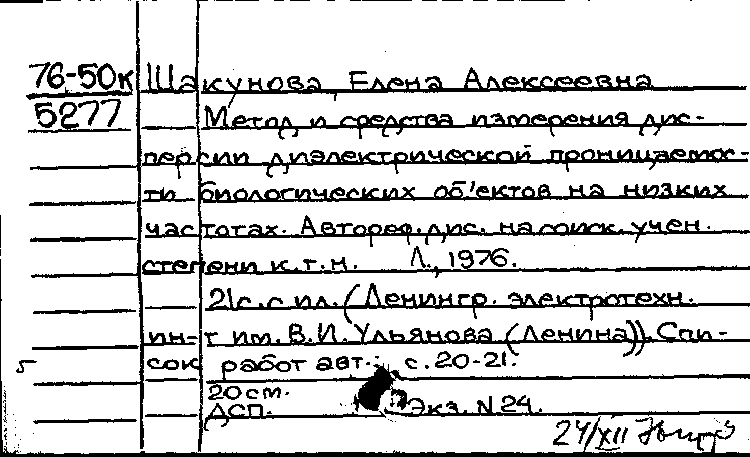 76-50к Шакунова, Елена Алексеевна
5277 Метод и средства измерения дис-
персии диэлектрической проницаемос-
ти биологических об'ектов на низких
частотах. Автореф. дис. на соиск. учен.
степени к.т.н. Л., 1976.
21с. с ил. (Ленингр. электротехн.
ин-т им. В.И. Ульянова (Ленина)). Спи-
сок работ авт.: с. 20-21.
20 см.
ДСП. Экз. N 24.
24/XII